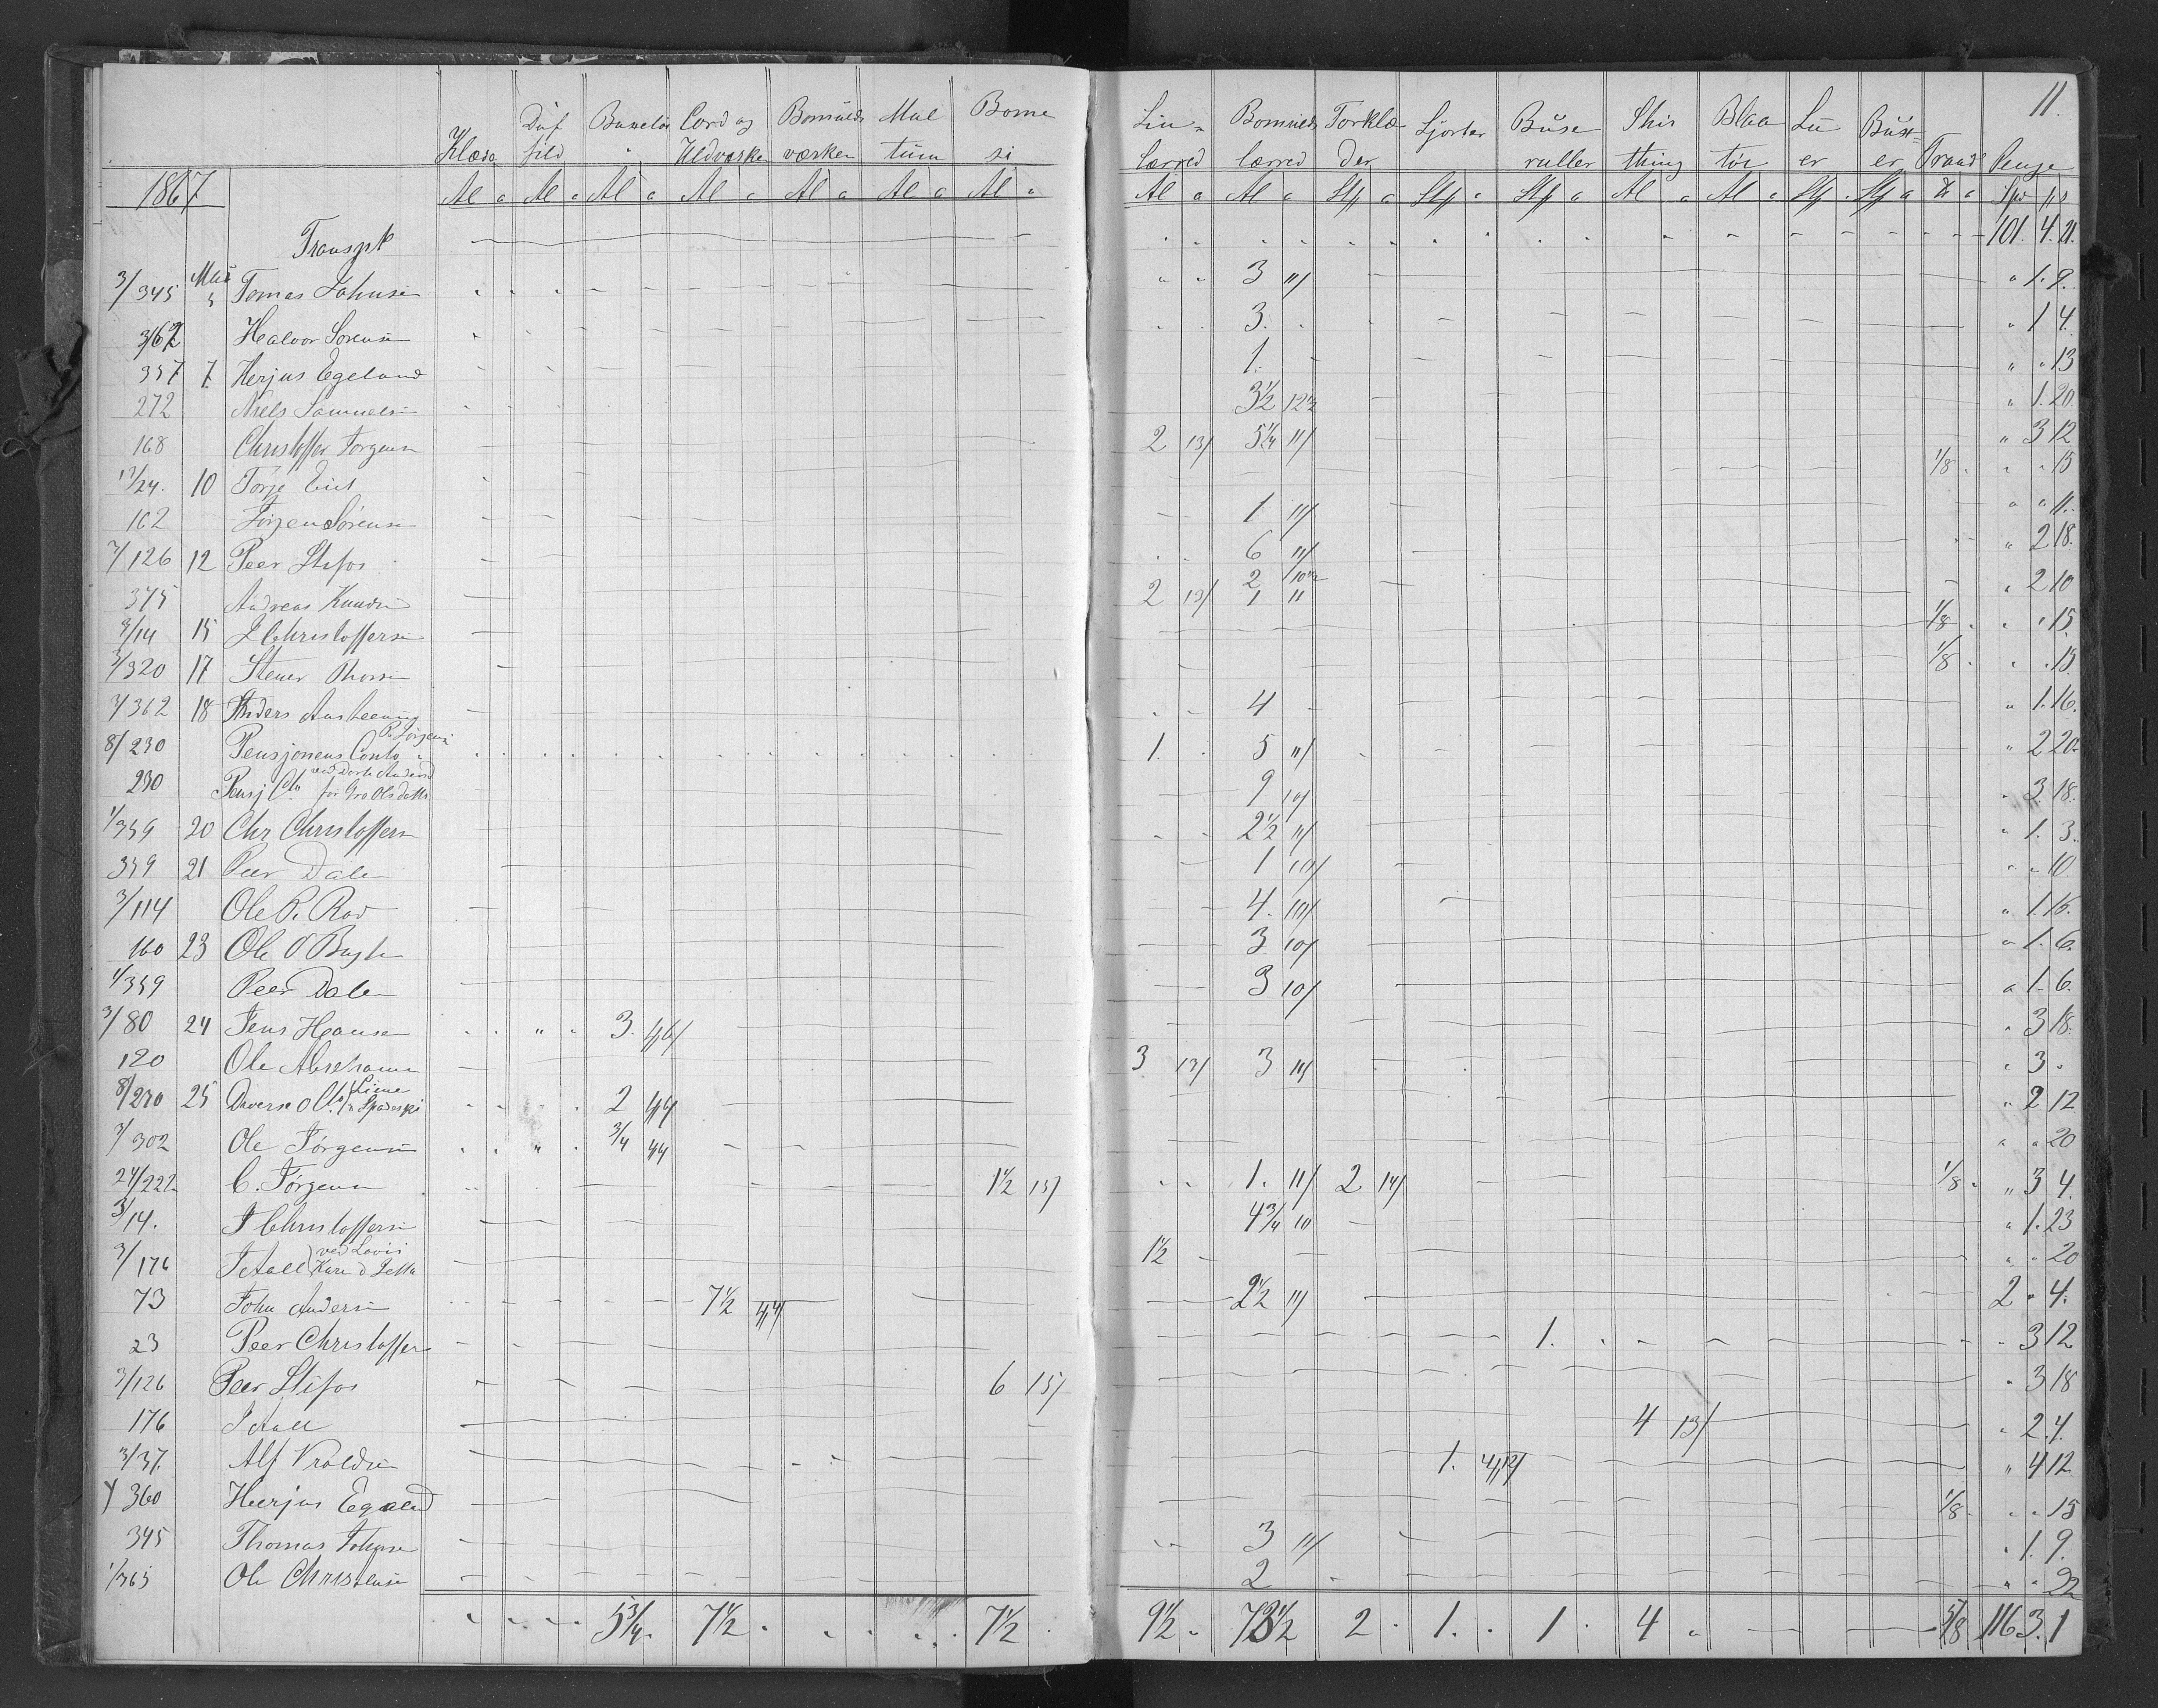 11.
Klæde Duffild Buxetøi Cord og Uldværke Bomulds værken Multum Bomesi Lin-Lærred Bomulds lærred Torklæder Sjorter Buseruller Shirthing Blaatøi Luer Buster Traad Penge
1867 Al a Al a Al a Al a Al a Al a Al a Al a Al a Stk a Stk a Stk a Al a Al a Stk a Stk a ℔ a Spd
Transpt 101. 4. 21.
3/345 Mai 3 Tomas Johnsen 3 11/ " 1. 9.
3/62 Halvor Sørensen 3. " 1 4.
357 7 Herjus Egeland 1. " " 13
272 Niels Samuelsen 3 1/2 12 1/2 " 1. 20
168 Christoffer Jørgensen 2 13/ 5 1/4 11/ " 3 12
24. 10 Torje 1/8 " " 15
162 Jørgen Sørensen 1 11/ " " 11.
7/126 12 Peer Stifos 6 11/ " 2 18.
375 Andreas Knudsen 2 13/ 2 10 1/2 1 11 " 2 10
3/14 15 J Christoffersen 1/8 " " 15
3/320 17 Stener Thorsen 1/8 " " 15
7/362 18 Anders 4 " 1. 16.
8/230 Pensjonens Conto P. Jørgensen 1. 5 11/ " 2 20.
230 Pensj Cto for Gro Olsdatter 9 10/ " 3. 18.
1/359 20 Chr Christoffersen 2 1/2 11/ " 1. 3.
359 21 Peer Dalen 1 10/ " " 10
3/114 Ole P. Rød 4. 10/ " 1. 16.
160 23 Ole O 3 10/ " 1. 6.
1/359 Peer Dalen 3 10/ " 1. 6.
3/80 24 Jens Hansen 3. 46/ " 3 18.
120 Ole Abrahamsen 3 13/ 3 11/ " 3 "
8/230 25 Diverse Cto 2 44 " 2 12
3/302 Ole Jørgensen 3/4 44 " " 20
24/222 C. Jørgensen 1 1/2 15/ 1. 11/ 2 14/ 1/8 " 3 4.
3/14. J Christoffersen 4 3/4 10 " 1. 23
3/176 J Aall 1 1/2 " " 20
73 John Andersen 7 1/2 44/ 2 1/2 11/ 2 " 4.
23 Peer Christoffersen 1. " 3 12
3/126 Peer Stifos 6 15/ " 3 18
176 J Aall 4 13/ " 2. 4.
3/37. Alf Vraldsen 1. 4/12/ " 4 12
360 Herjus Egeland 1/8 " " 15
345 Thomas Johnsen 3 11/ " 1. 9.
1/365 Ole Christensen 2 " " 22
5 3/4 7 1/2 7 1/2 9 1/2 2 1. 1 4 5/8 116 3. 1